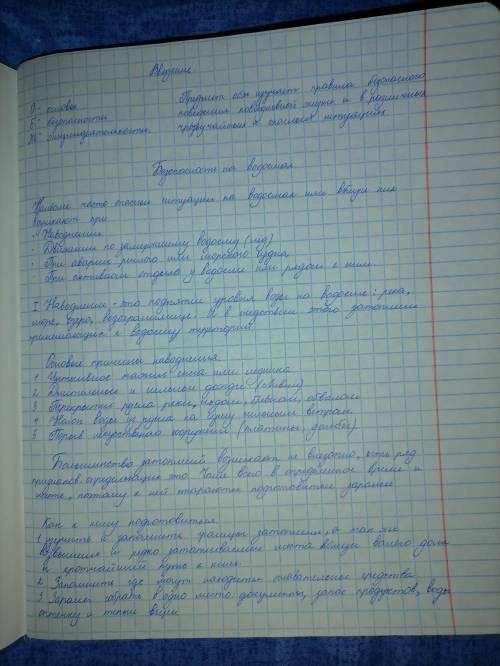 Введение
О - основы Предмет обж изучает правила безопасного
Б - безопасности поведения повседневной жизни и в различных
Ж - жизнедеятельности. чрезвычайных и опасных ситуациях.
Безопасность на водоемах.
Наиболее часто опасные ситуации на водоемах или вблизи них
возникают при
- Наводнении
- Движении по замерзшему водоему (лёд)
- При аварии речного или морского судна
- При активном отдыхе у водоема или рядом с ним.
I Наводнение - это поднятие уровня воды на водоеме: река,
море, озеро, водохранилище. И в следствии этого затопление
прилегающих к водоему территорий.
Основные причины наводнения
1 таяние снега или ледника
2 Длительные и сильные дожди (ливни)
3 Перекрытие русла реки, льдом, обвалом
4 воды из русла на сушу сильным ветром
5 Прорыв искусственного сооружения (плотины, дамбы).
Большинство затоплений возникают не внезапно, есть ряд
признаков определяющих это. Чаще всего в определенное время и
месте, поэтому к ней стараются подготовиться заранее
Как к нему подготовиться
1 и запомнить границы затопления, а так же
возвышенные и редко затапливаемые места вблизи вашего дома
и кротчайший путь к ним.
2 Запомнить где могут находится плавательные средства
3 Заранее собрать в одно место: документы, запас продуктов, воды
аптечку и теплые вещи